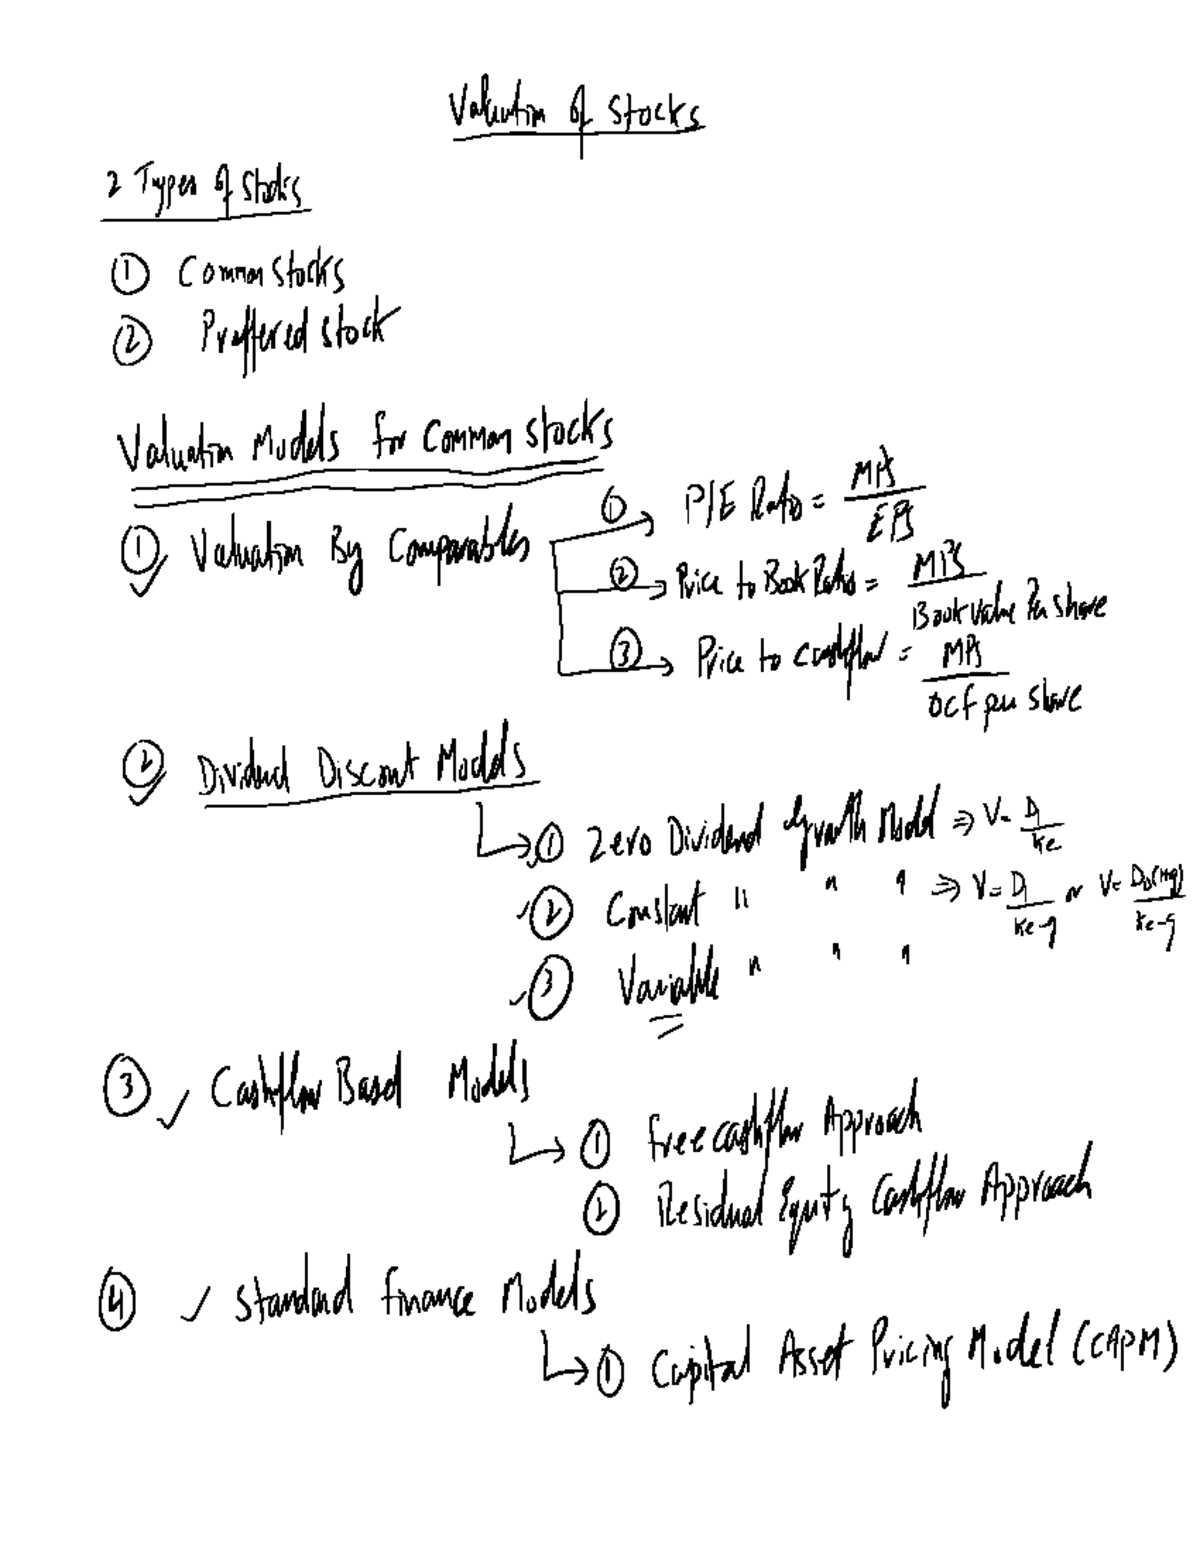 Valuation of Stocks
2 Types of Stocks
① Common Stocks
② Preffered stock
Valuation Models for Common Stocks
① Valuation By Comparables
① P/E Ratio = MPS / EPS
② Price to Book Ratio = MPS / Book value Per share
③ Price to cashflow = MPS / OCF per share
② Dividend Discount Models
① Zero Dividend Growth Model ⇒ V = D1 / ke
② Constant " " " ⇒ V = D1 / ke-g or V = D0(1+g) / ke-g
③ Variable " " "
③ Cashflow Based Models
① free cashflow Approach
② Residual Equity Cashflow Approach
④ Standard finance Models
① Capital Asset Pricing Model (CAPM)